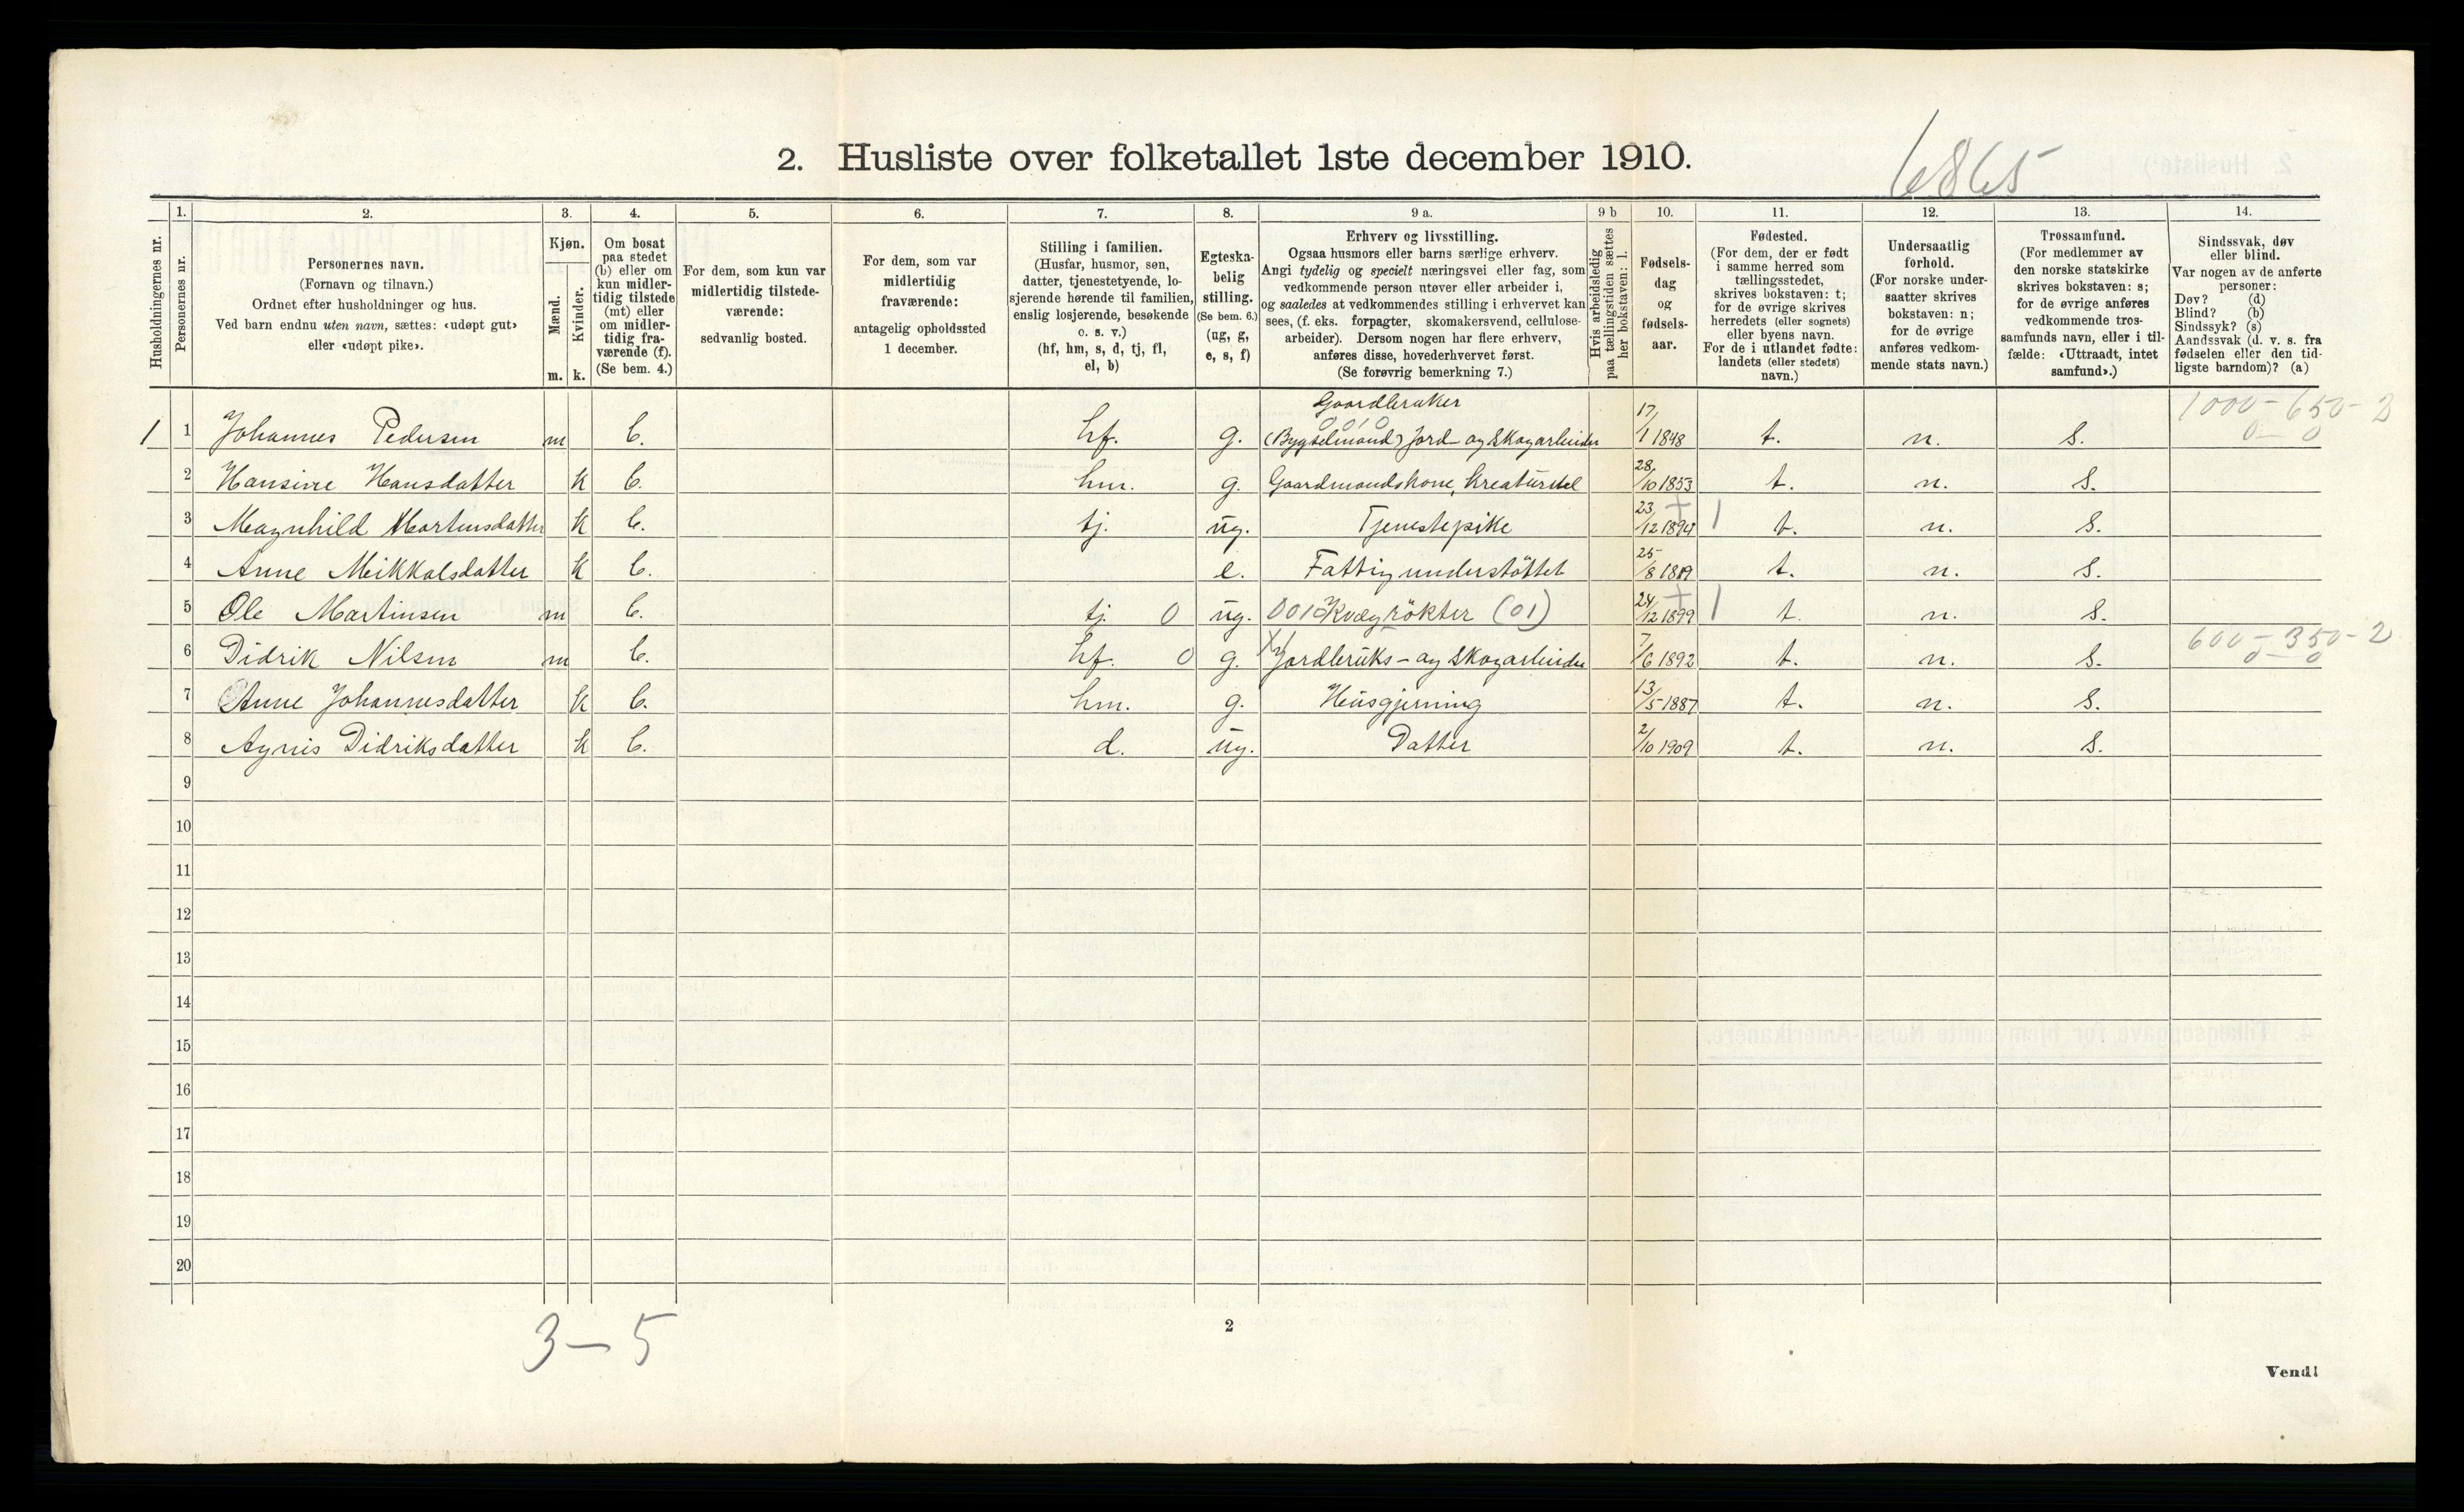 2. Husliste over folketallet 1ste december 1910.
6865
1. 2. 3. 4. 5. 6. 7. 8. 9 a. 9 b 10. 11. 12. 13. 14.
Husholdningernes nr.
Personernes nr.
Personernes navn.
(Fornavn og tilnavn.)
Ordnet efter husholdninger og hus.
Ved barn endnu uten navn, sættes: «udøpt gut»
eller «udøpt pike».
Kjøn.
Mænd.
Kvinder.
m. k.
Om bosat
paa stedet
(b) eller om
kun midler-
tidig tilstede
(mt) eller
om midler-
tidig fra-
værende (f).
(Se bem. 4.)
For dem, som kun var
midlertidig tilstede-
værende:
sedvanlig bosted.
For dem, som var
midlertidig
fraværende:
antagelig opholdssted
1 december.
Stilling i familien.
(Husfar, husmor, søn,
datter, tjenestetyende, lo-
sjerende hørende til familien,
enslig losjerende, besøkende
o. s. v.)
(hf, hm, s, d, tj, fl,
el, b)
Egteska-
belig
stilling.
(Se bem. 6.)
(ug, g,
e, s, f)
Erhverv og livsstilling.
Ogsaa husmors eller barns særlige erhverv.
Angi tydelig og specielt næringsvei eller fag, som
vedkommende person utøver eller arbeider i,
og saaledes at vedkommendes stilling i erhvervet kan
sees, (f. eks. forpagter, skomakersvend, cellulose-
arbeider). Dersom nogen har flere erhverv,
anføres disse, hovederhvervet først.
(Se forøvrig bemerkning 7.)
Hvis arbeidsledig
paa tællingstiden sættes
her bokstaven: l.
Fødsels-
dag
og
fødsels-
aar.
Fødested.
(For dem, der er født
i samme herred som
tællingsstedet,
skrives bokstaven: t;
for de øvrige skrives
herredets (eller sognets)
eller byens navn.
For de i utlandet fødte:
landets (eller stedets)
navn.)
Undersaatlig
forhold.
(For norske under-
saatter skrives
bokstaven: n;
for de øvrige
anføres vedkom-
mende stats navn.)
Trossamfund.
(For medlemmer av
den norske statskirke
skrives bokstaven: s;
for de øvrige anføres
vedkommende tros-
samfunds navn, eller i til-
fælde: «Uttraadt, intet
samfund».)
Sindssvak, døv
eller blind.
Var nogen av de anførte
personer:
Døv? (d)
Blind? (b)
Sindssyk? (s)
Aandssvak (d. v. s. fra
fødselen eller den tid-
ligste barndom)? (a)
Gaardbruker 1000-650-2
0010 0-0
1 1 Johannes Pedersen m b. hf. g. (Bygselmand) Jord- og Skogarbeider 17/1 1848 t. n. S.
2 Hansine Hansdatter k b. hm. g. Gaardmandskone, Kreaturstel 28/10 1853 t. n. S.
3 Magnhild Mortensdatter k b. tj. ug. Tjenestepike 23/12 1894 t. n. S.
4 Anne Mikkalsdatter k b. e. Fattigunderstöttet 25/8 1819 t. n. S.
5 Ole Martinsen m b. tj. 0 ug. 0010 Kvægrökter (01) 24/12 1899 t. n. S.
600-350-2
0-0
6 Didrik Nilsen m b. hf. 0 g. Jordbruks- og Skogarbeider 7/6 1892 t. n. S.
7 Anne Johannesdatter k b. hm. g. Husgjerning 13/5 1887 t. n. S.
8 Agnis Didriksdatter k b. d. ug. Datter 2/10 1909 t. n. S.
9
10
11
12
13
14
15
16
17
18
19
20
3-5
2
Vend!